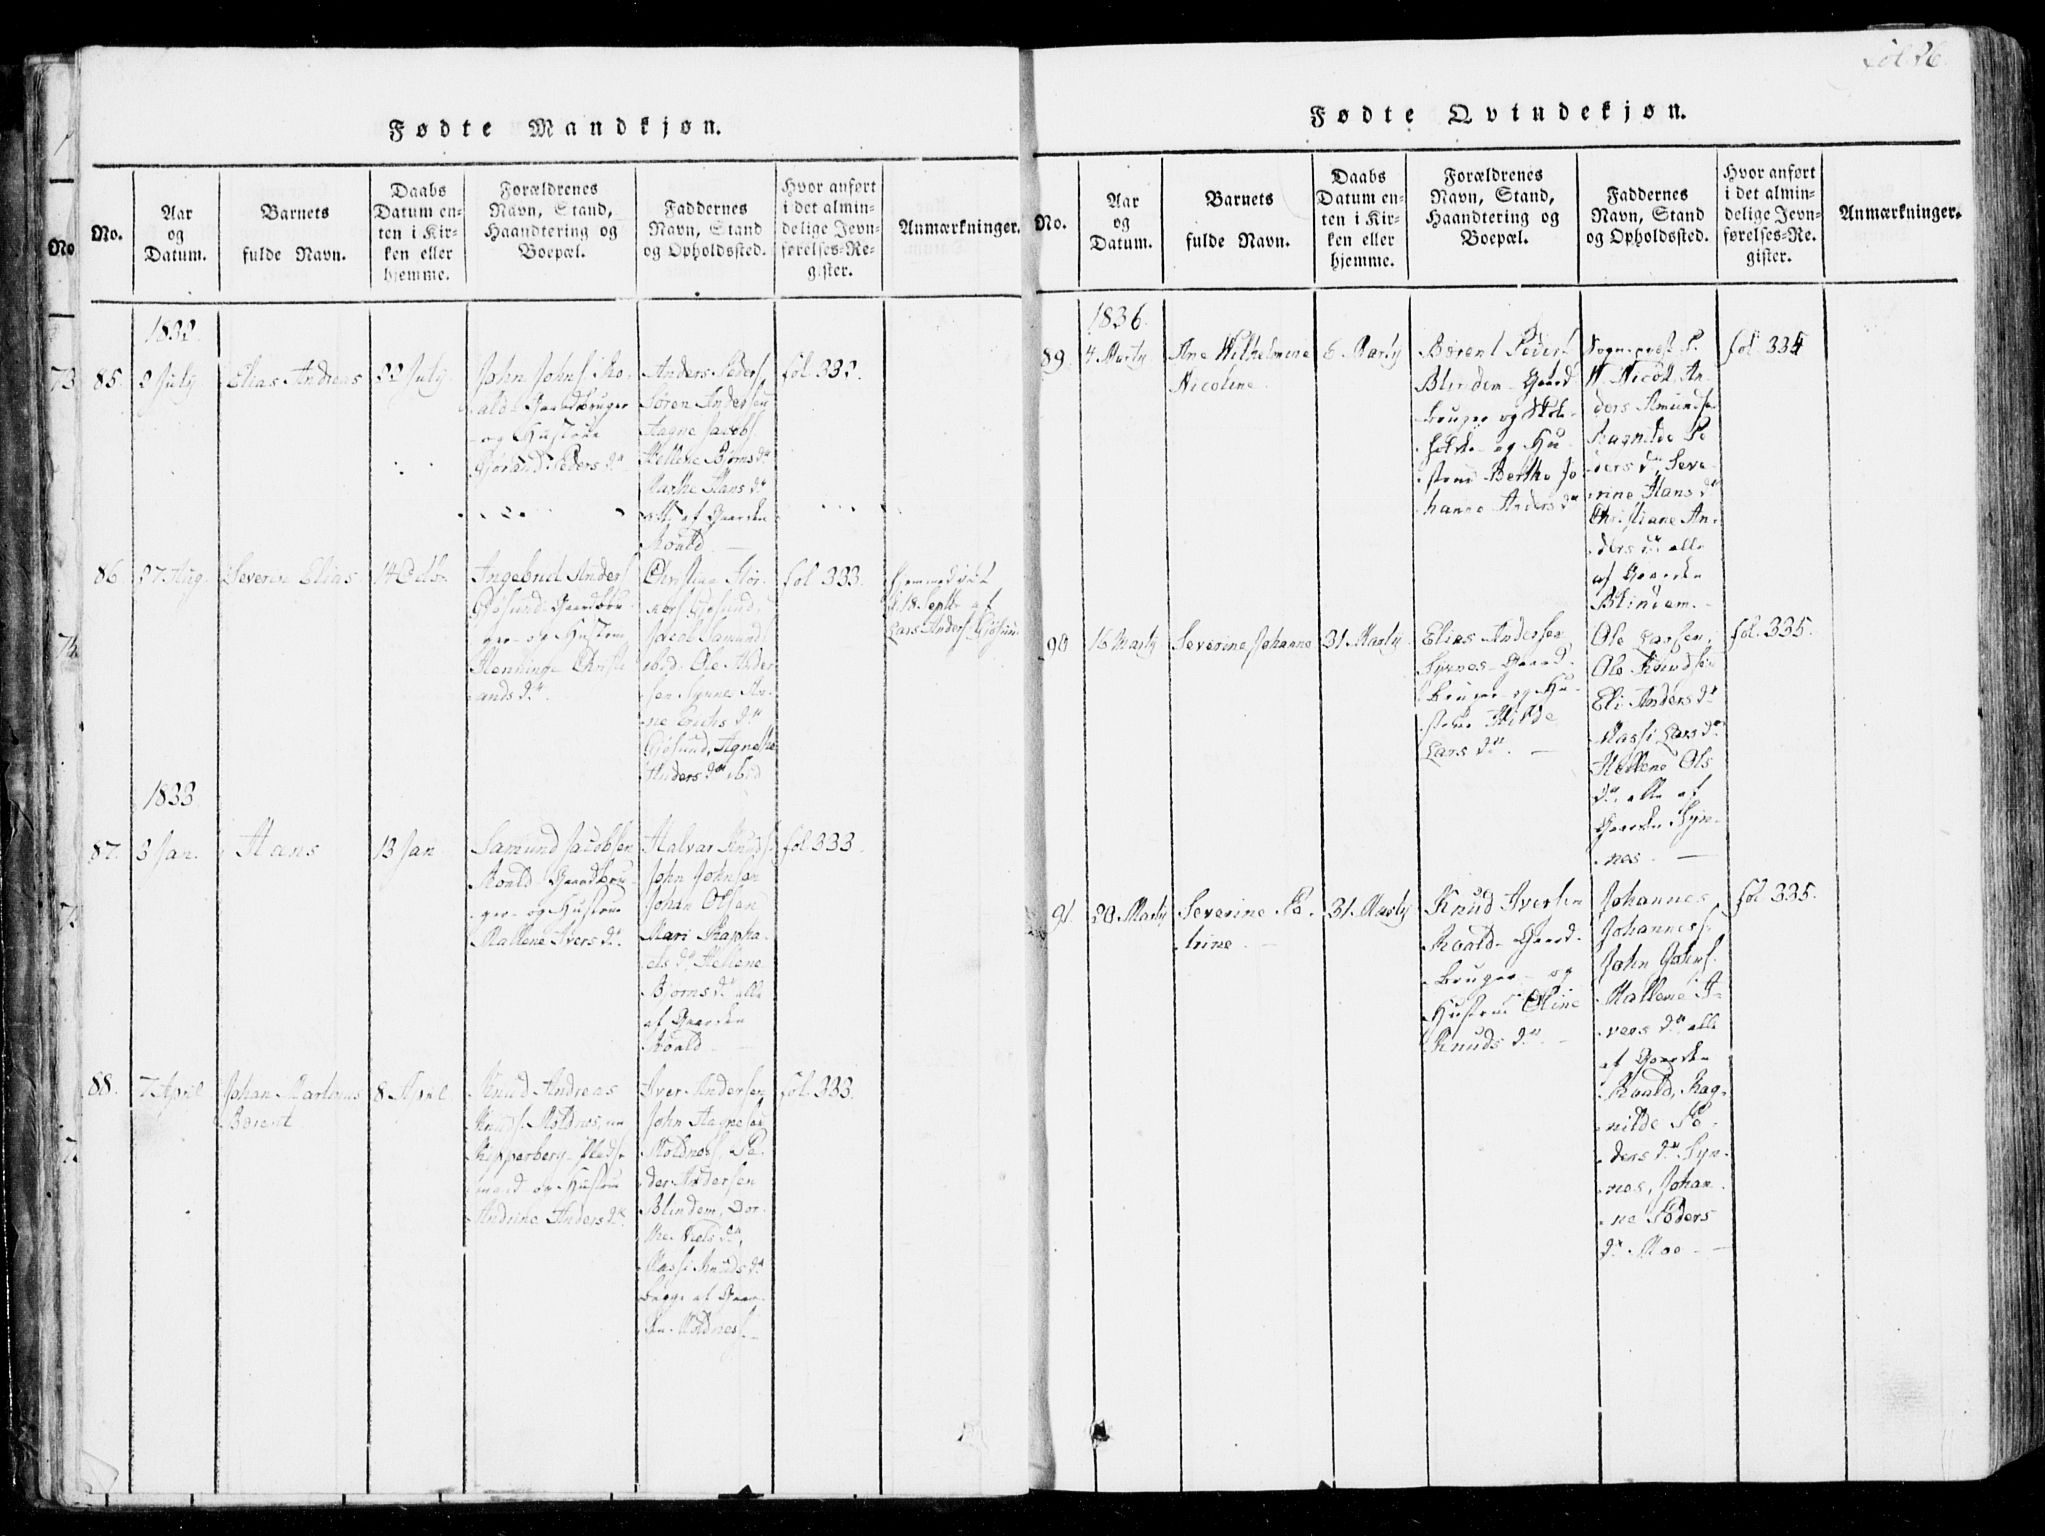 Fol. 26.
Fødte Mandkjøn.
No.
Aar
og
Datum.
Barnets
fulde Navn.
Daabs
Datum en-
ten i Kir-
ken eller
hjemme.
Forældrenes
Navn, Stand,
Haandtering og
Boepæl.
Faddernes
Navn, Stand
og Opholdssted.
Hvor anført
i det almin-
delige Jevn-
førelses-Re-
gister.
Anmærkninger.
1832.
85. 2 July Elias Andreas 22 July
John Johns. Ro-
ald Gaardbruger
og Hustrue
Peders Dr.
Anders Peders.
Søren Andersen
Aagne Jacobs.
Hellene Bjørns Dr.
Marthe Hans Dr.
alle af Gaarden
Roald
fol 332.
86 27 Aug. Severin Elias 14 Octbr.
Ingebrid Anders.
Gjøsund Gaardbru-
ger og Hustrue
Henninge Christi-
ands Dr.
Gjøsund,
Jacob Samunds.
ibid. Ole Ander-
sen Synnes An-
ne Erichs Dr.
Gjøsund, Agnethe
Anders Dr ibid
fol 333.
Hjemmedøbt
d. 18 Septbr af
Lars Anders. Gjøsund
1833.
87. 3 Jan. Hans 13 Jan
Samund Jacobsen
Roald Gaardbru-
ger og Hustrue
Mallene Ivers Dr.
Halvar Knuds.
John Johnsen
Johan Olsen
Mari Rapha-
els Dr Hellene
Bjørns Dr alle
af Gaarden
Roald
fol 333.
88. 7 April Johan Martinus
Berent
8 April
Knud Andreas
Knuds. Moldnes, en
mand og Hustrue
Andrine Anders Dr.
Iver Andersen
John Aagnesen
Moldnes, Pe-
der Andersen
Blindem, Dor-
the Niels Dr,
Massi Knuds Dr
begge af Gaar-
den Moldnes.
fol. 333.
Fødte Qvindekjøn.
No.
Aar
og
Datum.
Barnets
fulde Navn.
Daabs
Datum en-
ten i Kir-
ken eller
hjemme.
Forældrenes
Navn, Stand,
Haandtering og
Boepæl.
Faddernes
Navn, Stand
og Opholdssted.
Hvor anført
i det almin-
delige Jevn-
førelses-Re-
gister.
Anmærkninger.
1836.
89. 4 Marty Ane Wilhelmine
Nicoline
6 Marty
Berent Peders.
Blindem Gaard-
bruger og
og Hu-
strue Berthe Jo-
hanne Anders Dr
Sognepræst P.
W. Nicol. An-
ders Amunds.
Ragnilde Pe-
ders Dr, Seve-
rine Hans Dr
Christiane An-
ders Dr alle
af Gaarden
Blindem.
fol 334
90 16 Marty Severine Johanne 31 Marty
Elias Andersen
Synnes Gaard-
bruger og Hu-
strue Hilde
Lars Dr.
Ole Larsen,
Ole Knudsen
Eli Anders Dr
Massi Lars Dr
Hellene Ols
Dr. alle af
Gaarden Syn-
nes
fol. 335.
91. 20 Marty Severine Pe-
trine
31 Marty
Knud Iversen
Roald Gaard-
bruger og
Hustrue Oline
Knuds Dr.
Johannes
Johannes.
John Johns.
Mallene I-
vers Dr. alle
af Gaarden
Roald, Rag-
nilde Pe-
ders Dr. Syn-
nes, Johan-
ne Peders
Dr. Moe
fol 335.